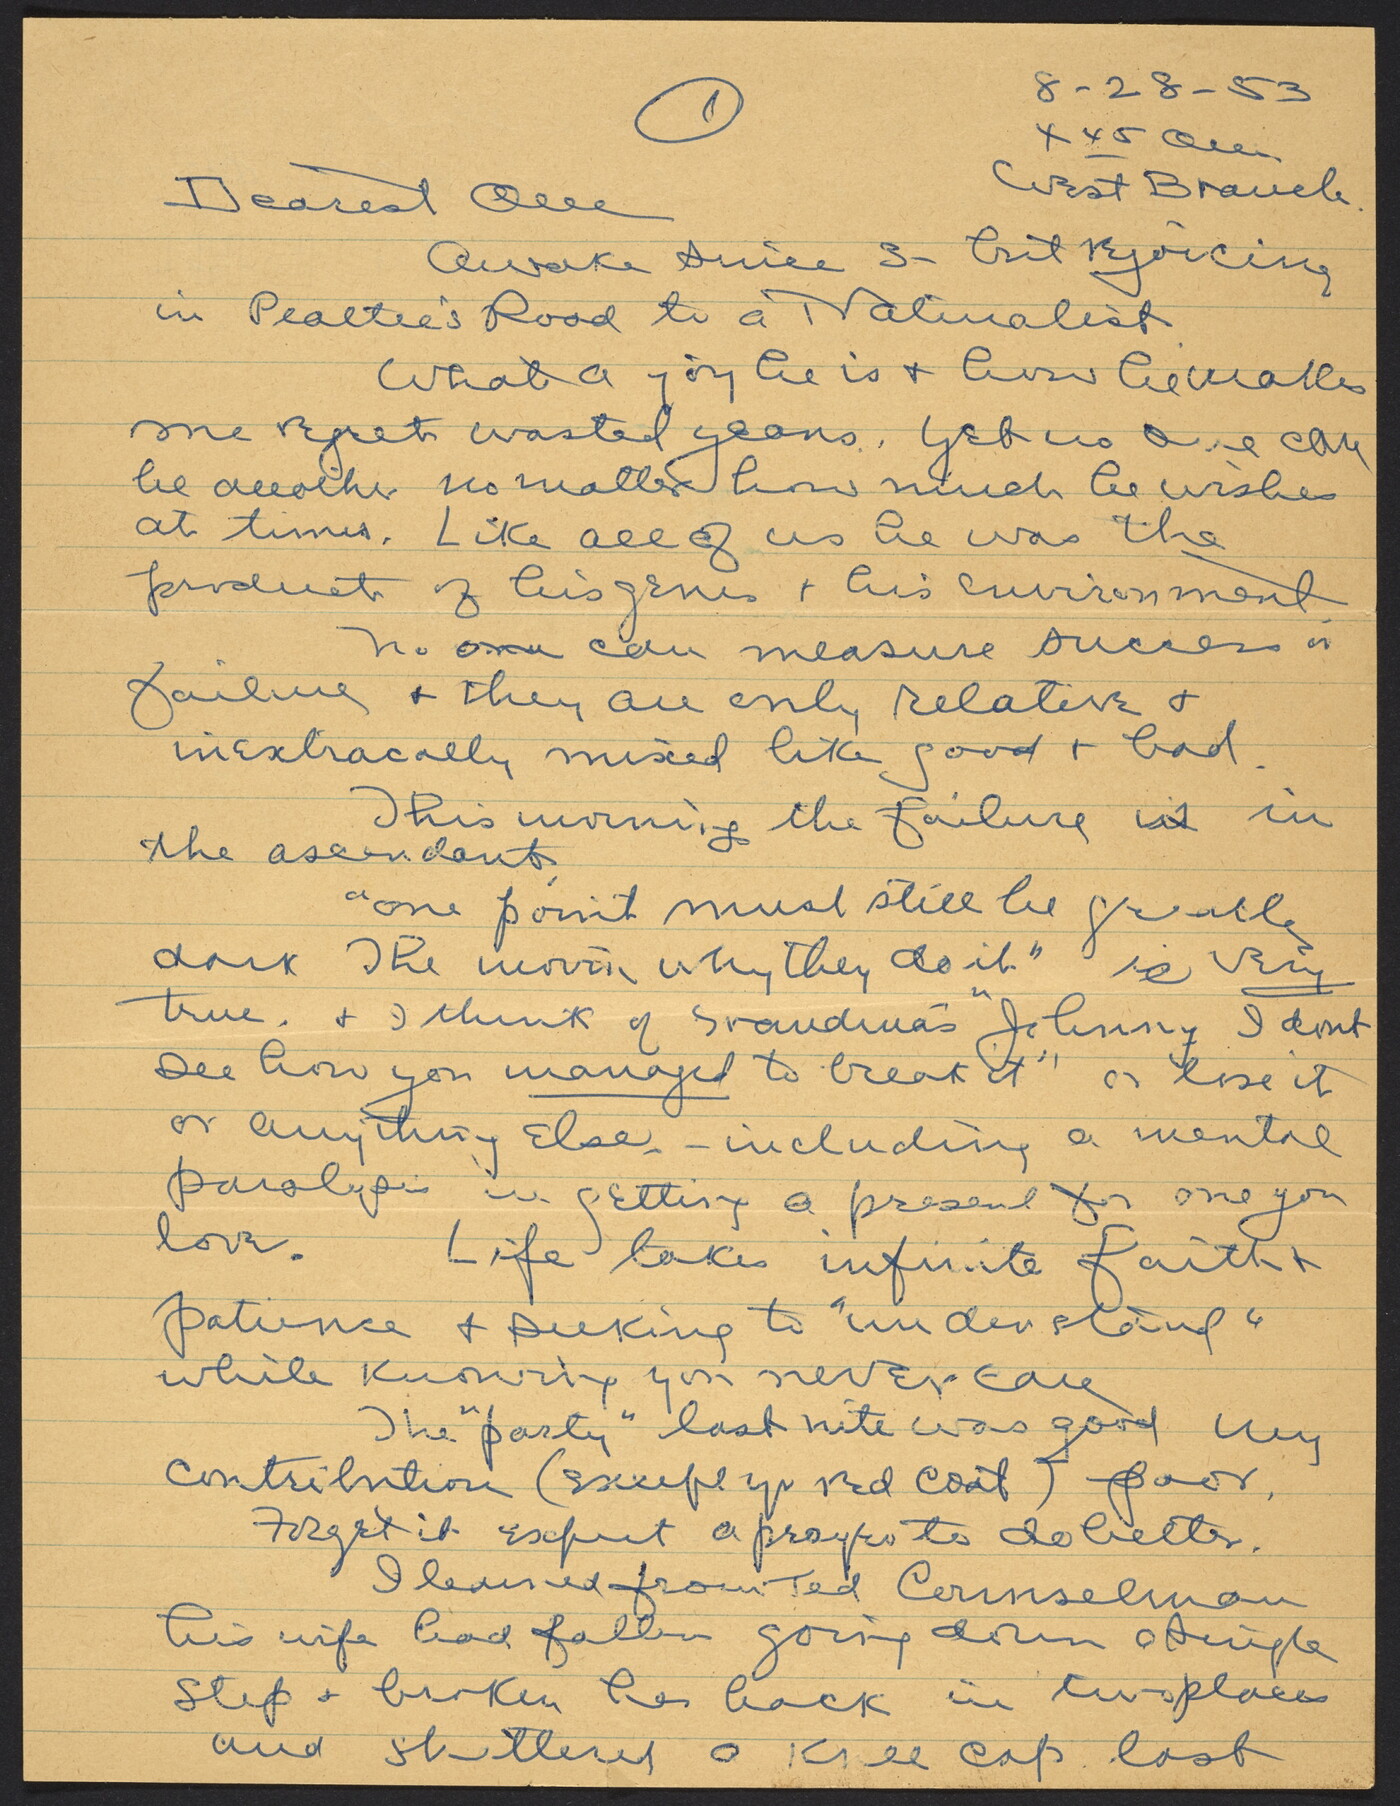 1
8-28-53
4 45 am
West Branch.
Dearest One
Awake since 3 - but rejoicing
in Peattie's Road to a Naturalist.
What a joy he is + how he makes
me regret wasted years. Yet no one can
be another no matter how much he wishes
at times. Like all of us he was the
product of his genes + his environment
No one can measure success or
failure + they are only relative +
inextracally mixed like good + bad.
This morning the failure is in
the ascendant.
"one point must still be greatly
dark The movin why they do it" is very
true. + I think of Grandma's "Johnny I dont
see how you managed to break it" or lose it
or anything else. - including a mental
paralysis in getting a present for one you
love. Life takes infinite faith +
patience + seeking to "understand"
while knowing you never can
The "party" last nite was good my
contribution (except yr red coat) poor.
Forget it except a prayer to do better.
I learned from Ted Counselman
his wife had fallen going down a single
step + broken her back in two places
and shattered a knee cap last